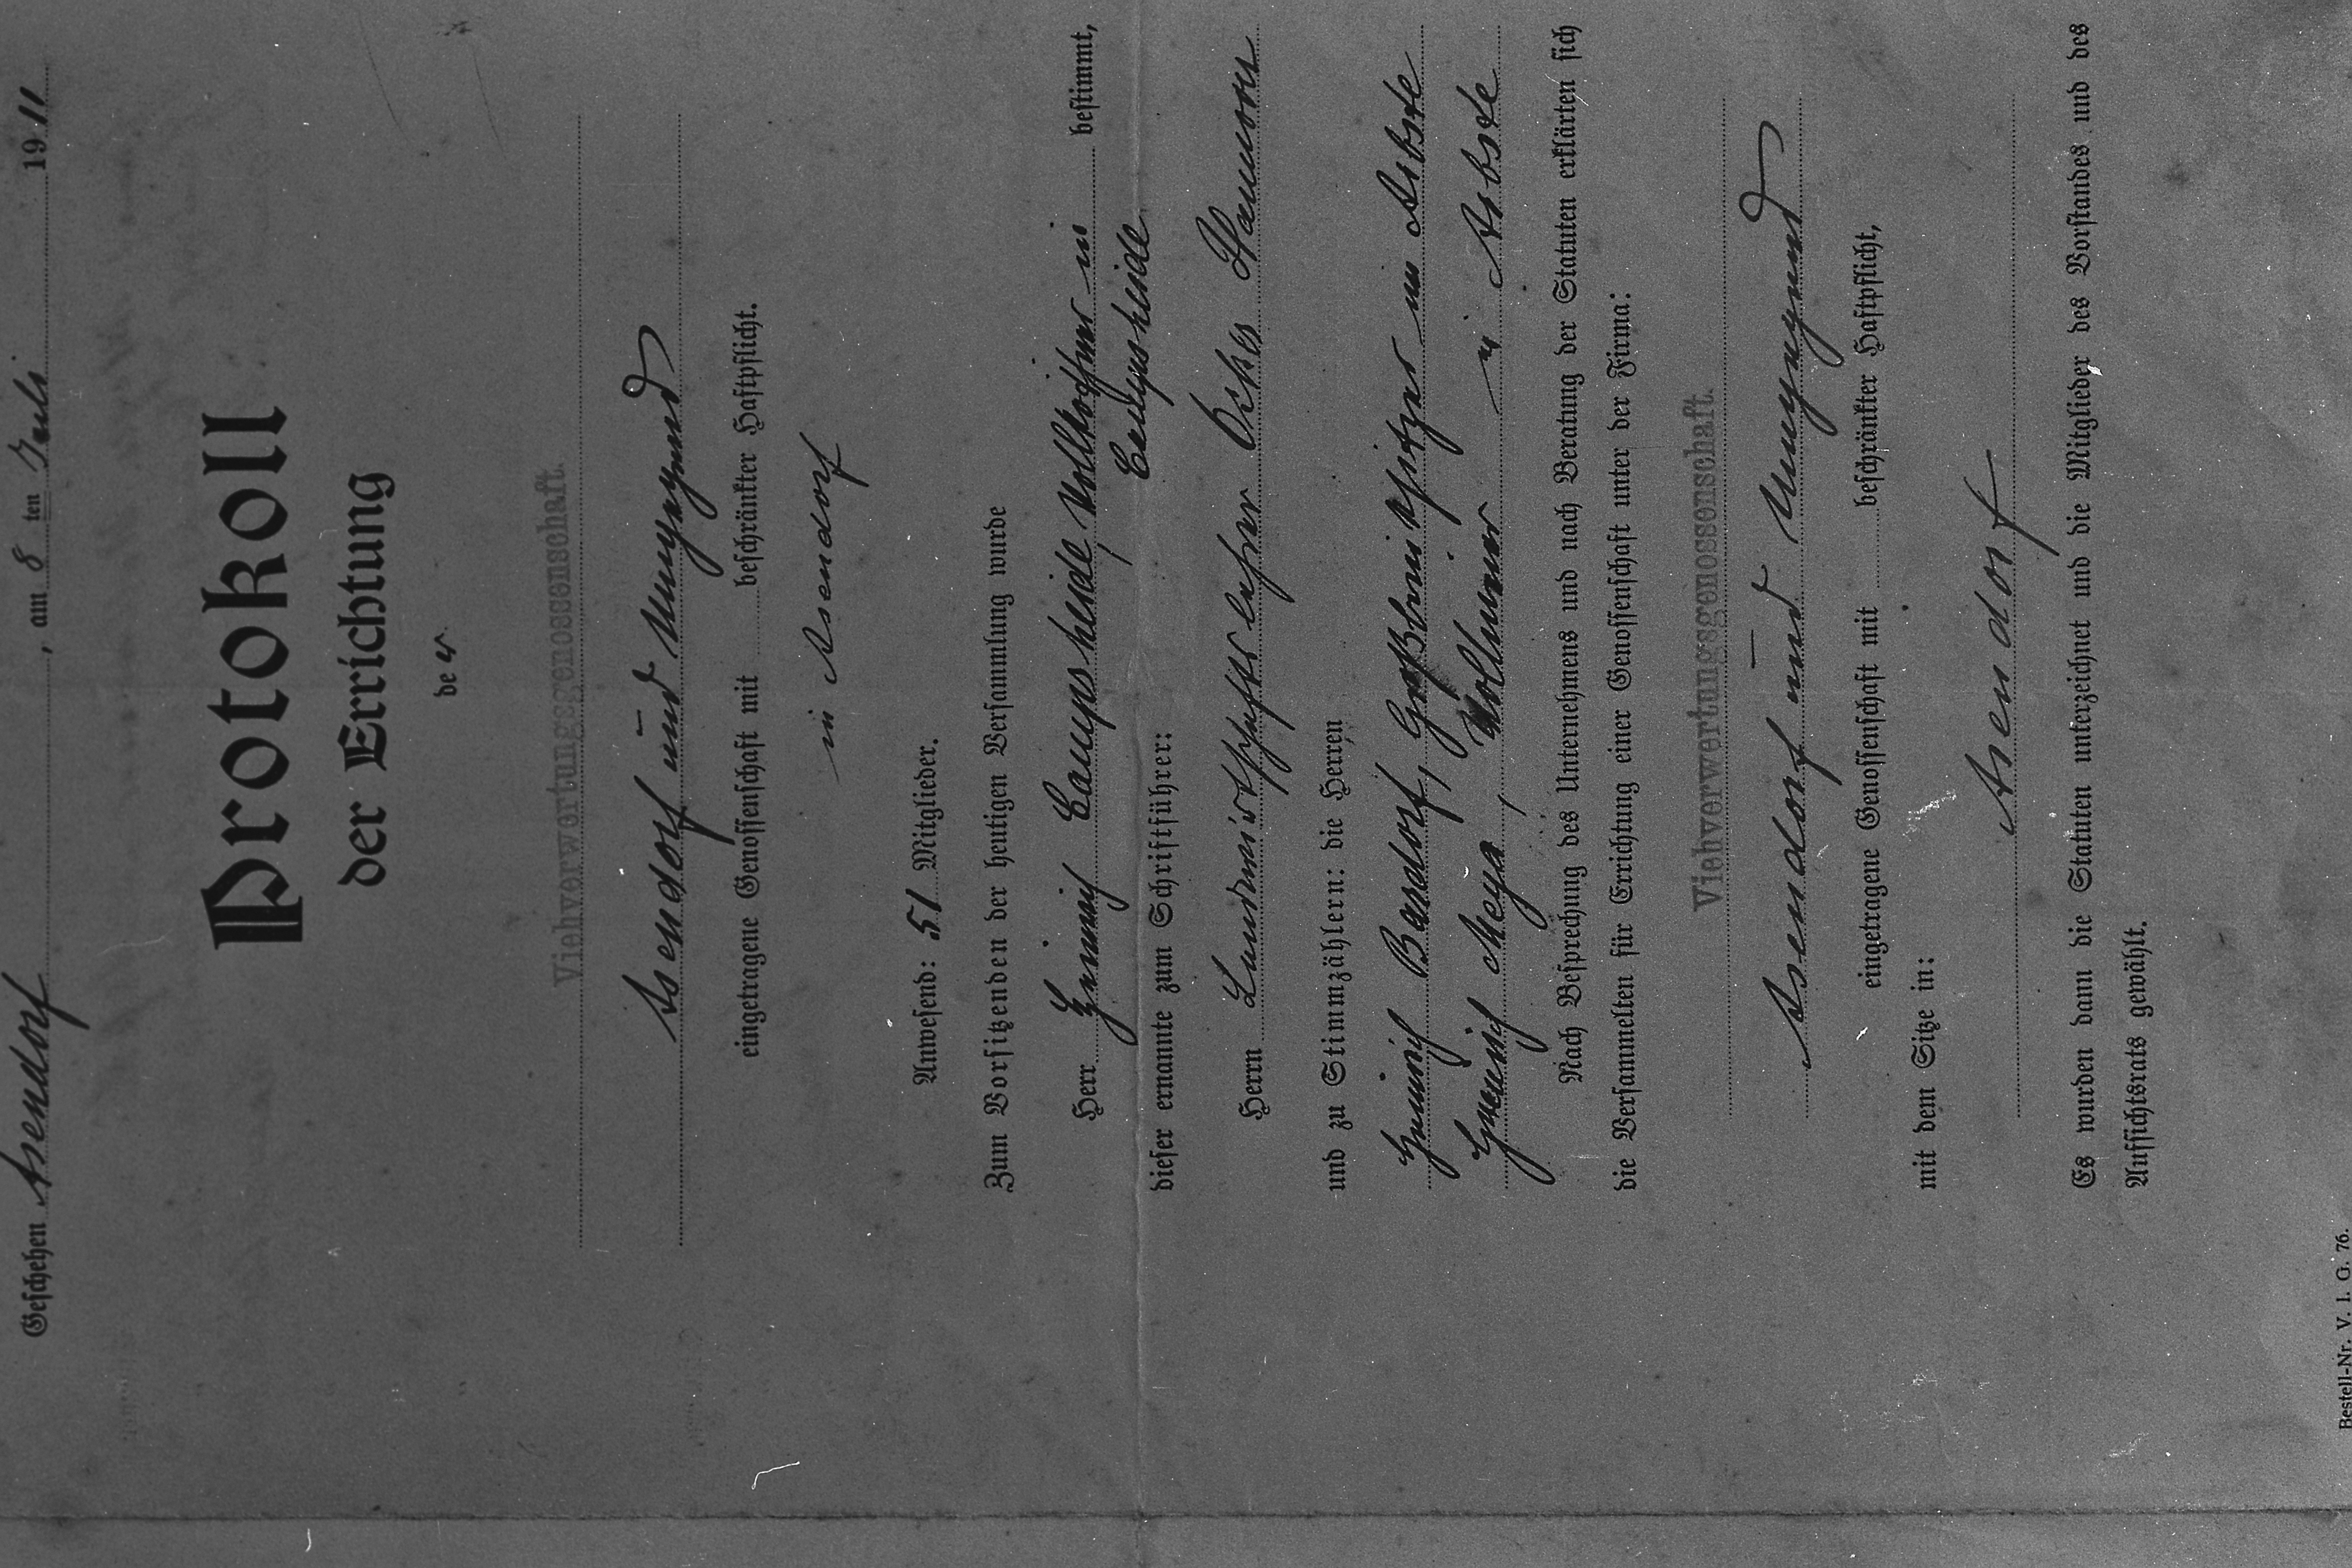 Geschehen Asendorf, am 8 ten Juli 1911
Protokoll
der Errichtung
der
Viehverwertungsgenossenschaft.
Asendorf und Umgegend
eingetragene Genossenschaft mit beschränkter Haftpflicht.
in Asendorf
Anwesend: 51 Mitglieder.
Zum Vorsitzenden der heutigen Versammlung wurde
Herr Heinrich Campsheide, Vollköthner in bestimmt,
Campsheide
dieser ernannte zum Schriftführer:
Herrn Landwirthschaftslehrer
und zu Stimmzählern: die Herren
Heinrich Bardorf, Großbrinksitzer in Arbste
Heinrich Meyer, Vollmeier in Arbste
Nach Besprechung des Unternehmens und nach Beratung der Statuten erklärten sich
die Versammelten für Errichtung einer Genossenschaft unter der Firma:
Viehverwertungsgenossenschaft.
Asendorf und Umgegend
eingetragene Genossenschaft mit beschränkter Haftpflicht,
mit dem Sitze in:
Asendorf
Es wurden dann die Statuten unterzeichnet und die Mitglieder des Vorstandes und des
Aufsichtsrats gewählt.
Bestell-Nr. V. I. G. 76.